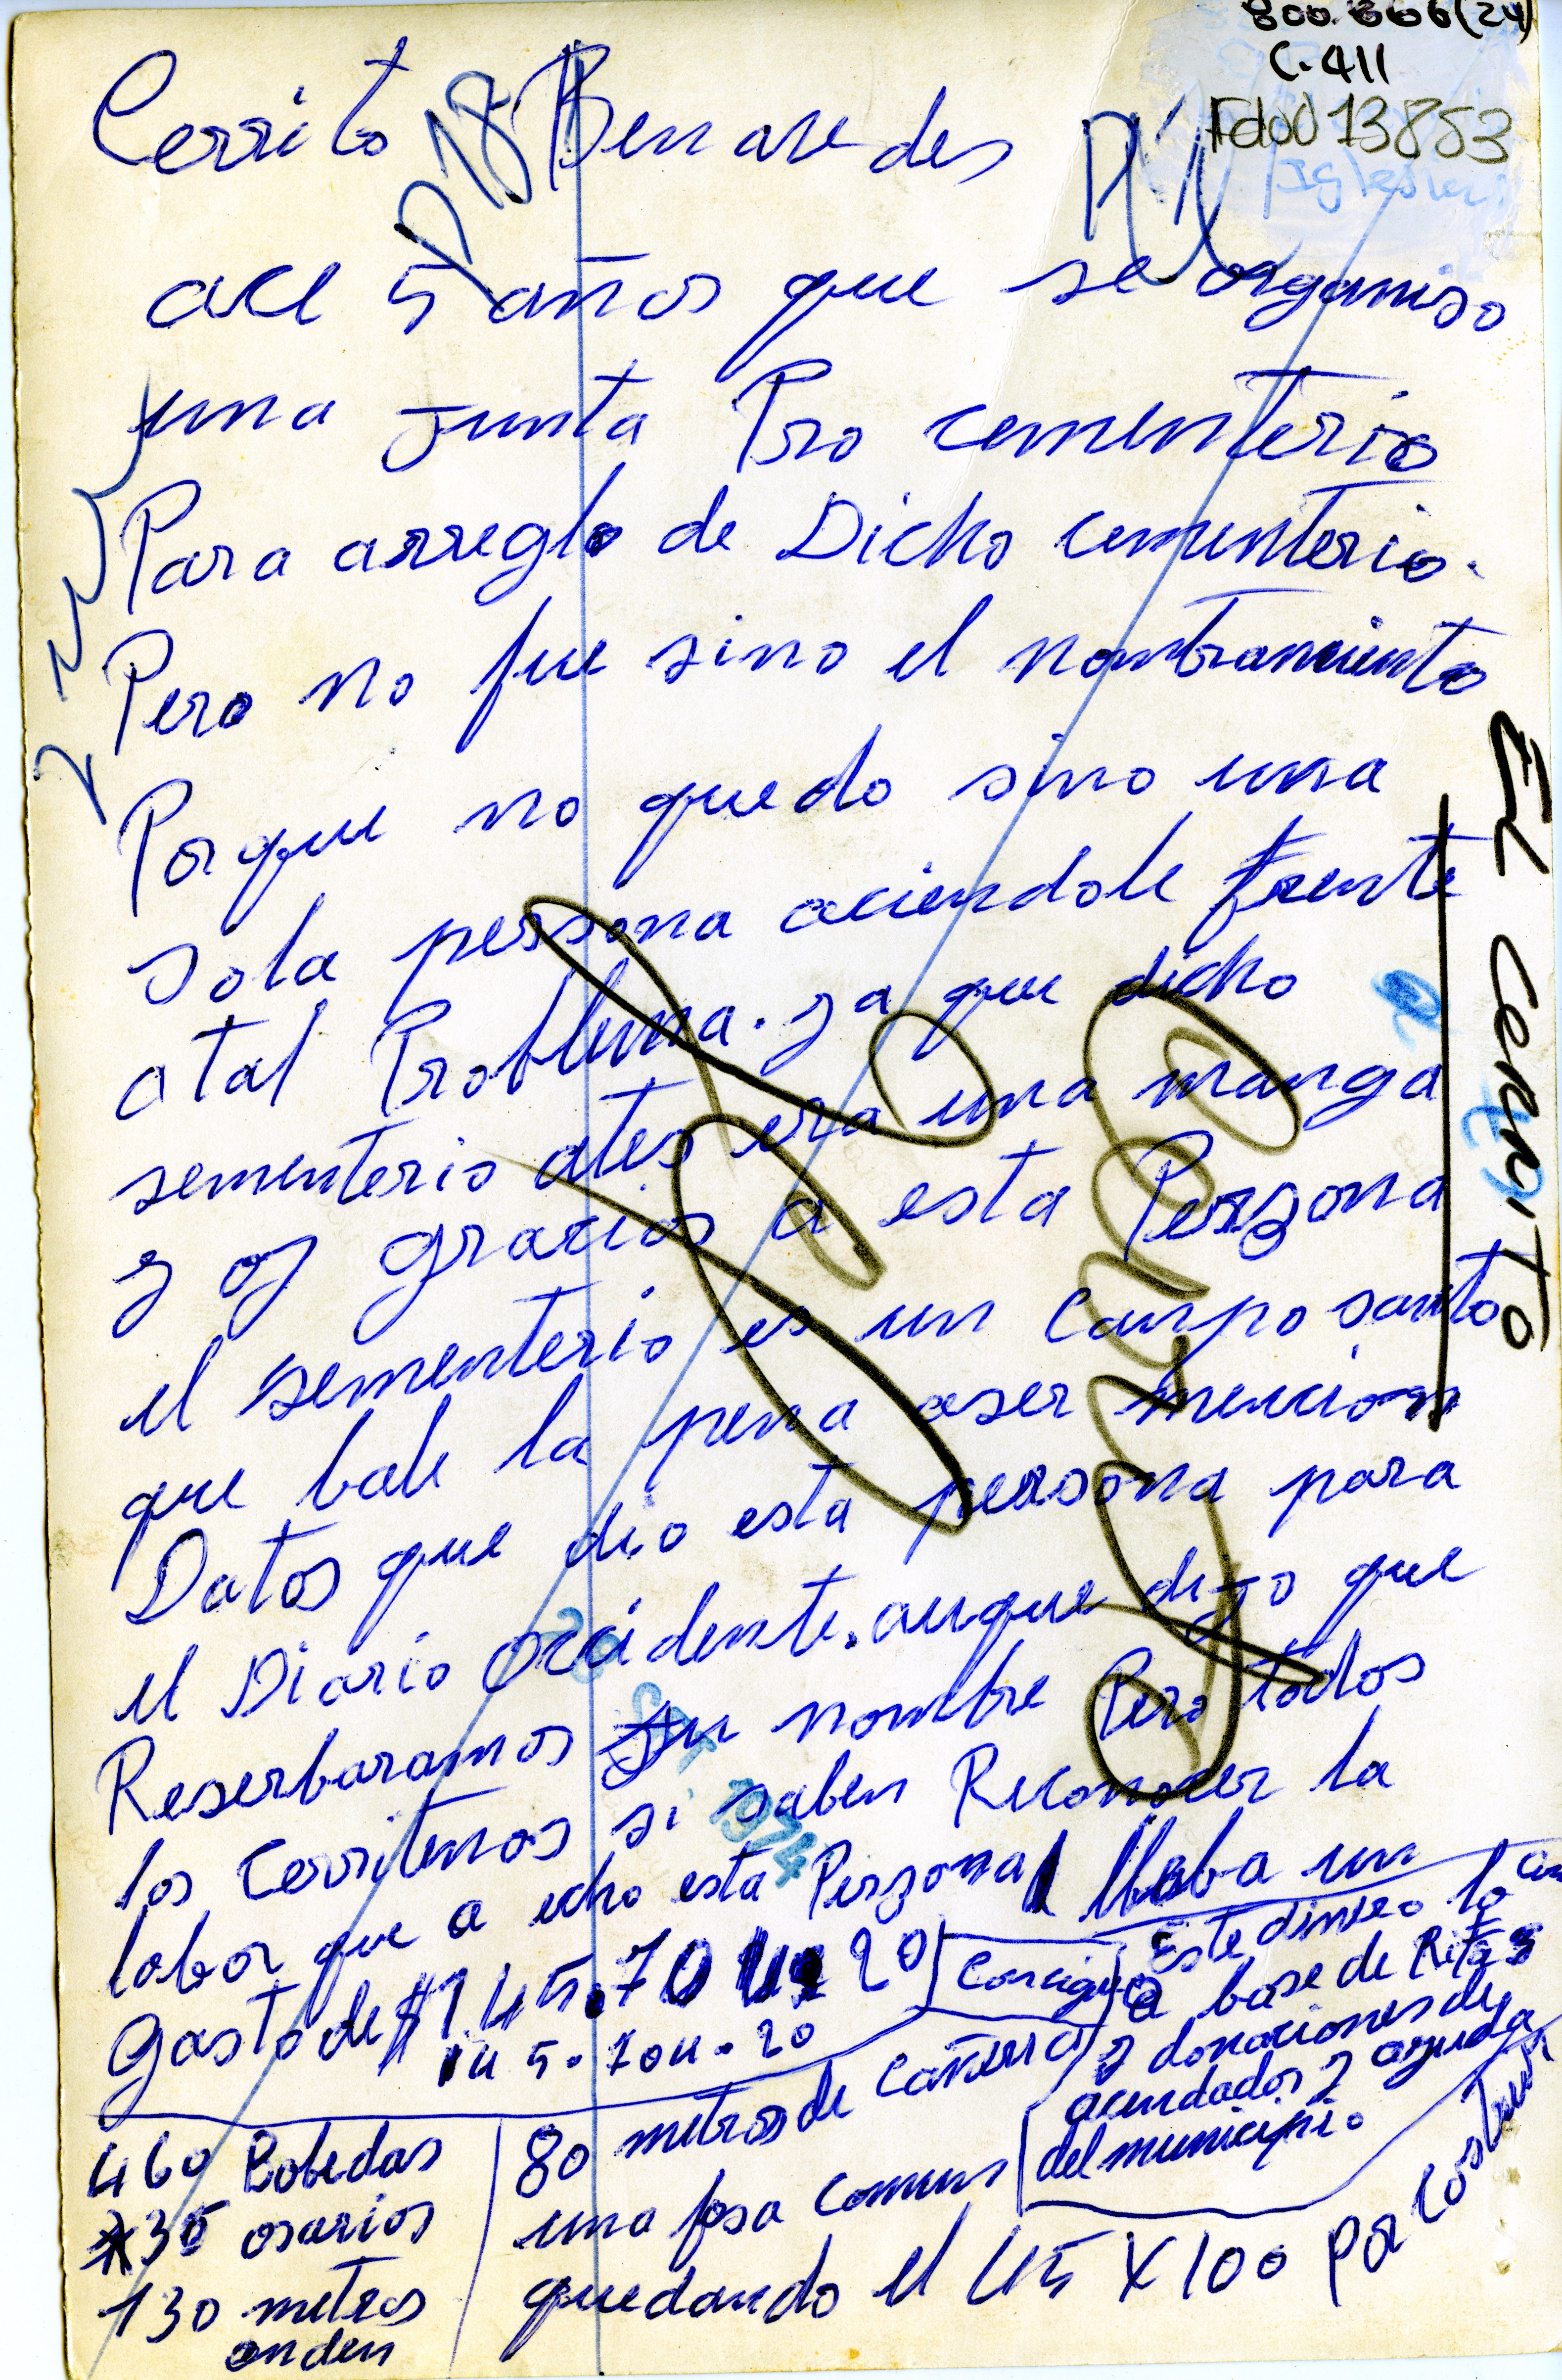 800.666(24)
C.411
Fdoc 13853
Iglesia
Cerrito Benavedes
ace 5 años que se organiso
una junta Pro cementerio
Para arreglo de Dicho cementerio.
Pero no fue sino el nombramiento
Porque no quedo sino una
sola persona aciendole frente
a tal Problema. ya que dicho
sementerio ates era una manga
y oy gracias a esta Perzona
el sementerio es un campo santo
que bale la pena aser mencion
Datos que dio esta persona para
el Diario Occidente. auque dijo que
Reserbaramos su nombre Pero todos
los Cerriteños si saben Reconocer la
labor que a echo esta Perzona lleba un
gasto de $145.704.20
145.704.20
Consigue
Este dinero lo
a base de Rifas
y donaciones de
acendados y ayuda
del municipio
460 Bobedas
36 osarios
130 metros
anden
80 metros de cañeria
una fosa comun
quedando el 45 X 100 por costruir
EL CERRITO
SET 1974